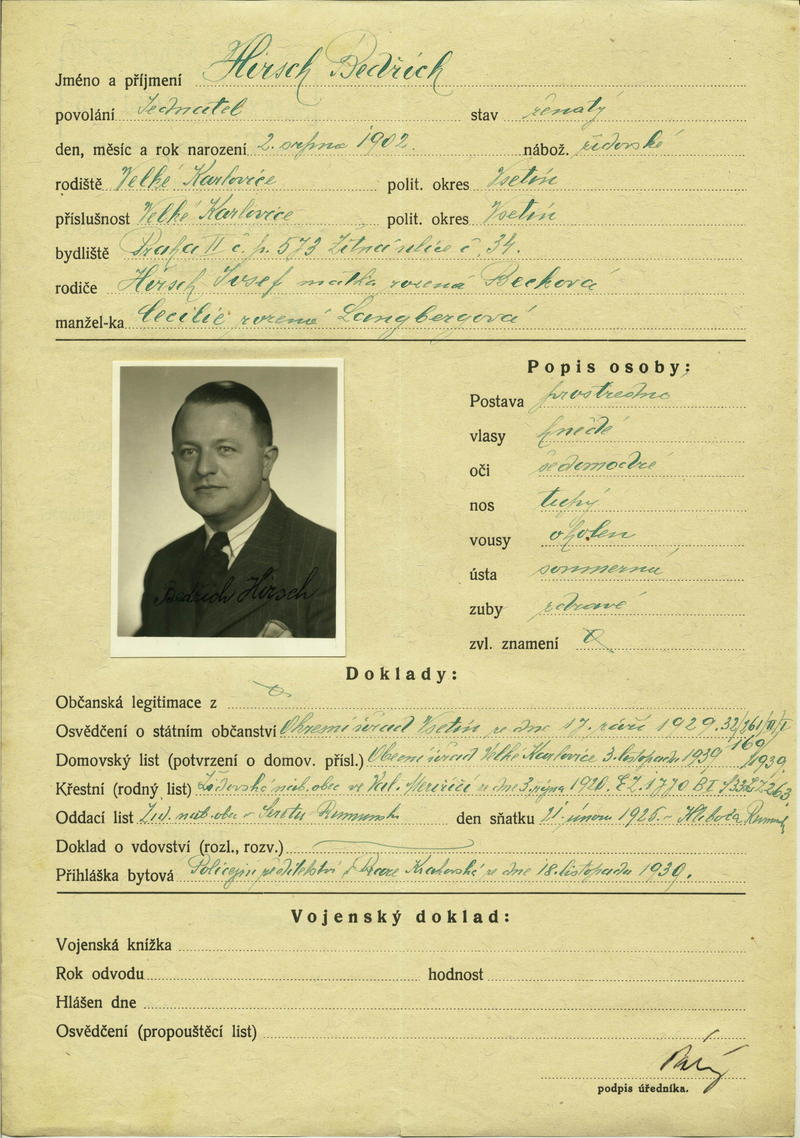 Jméno a příjmení Hirsch Bedřich
povolání Jednatel stav ženatý
den, měsíc a rok narození 2. srpna 1902. nábož. židovské
rodiště Velké Karlovice polit. okres Vsetín
příslušnost Velké Karlovice polit. okres Vsetín
bydliště Praha II č. p. 573 Žitná ulice č. 34.
rodiče Hirsch Josef matka rozená Becková
manžel-ka Cecilie rozená Langbergová
Popis osoby:
Postava prostředno
vlasy hnědé
oči šedomodré
nos tupý
vousy oholen
ústa souměrná
zuby zdravé
zvl. znamení
Bedřich Hirsch
Doklady:
Občanská legitimace z
Osvědčení o státním občanství Okresní úřad Vsetín ze dne 17. září 1929.
Domovský list (potvrzení o domov. přísl.) Obecní úřad Velké Karlovice 3. listopadu 1939 169/1939
Křestní (rodný list) Židovská náb. obec ve Val. Meziříčí ze dne 3. října 1920.
Oddací list Žid. náb. obec den sňatku 21. února 1926 -
Doklad o vdovství (rozl., rozv.)
Přihláška bytová Policejní ředitelství v Praze ze dne 18. listopadu 1939.
Vojenský doklad:
Vojenská knížka
Rok odvodu hodnost
Hlášen dne
Osvědčení (propouštěcí list)
podpis úředníka.